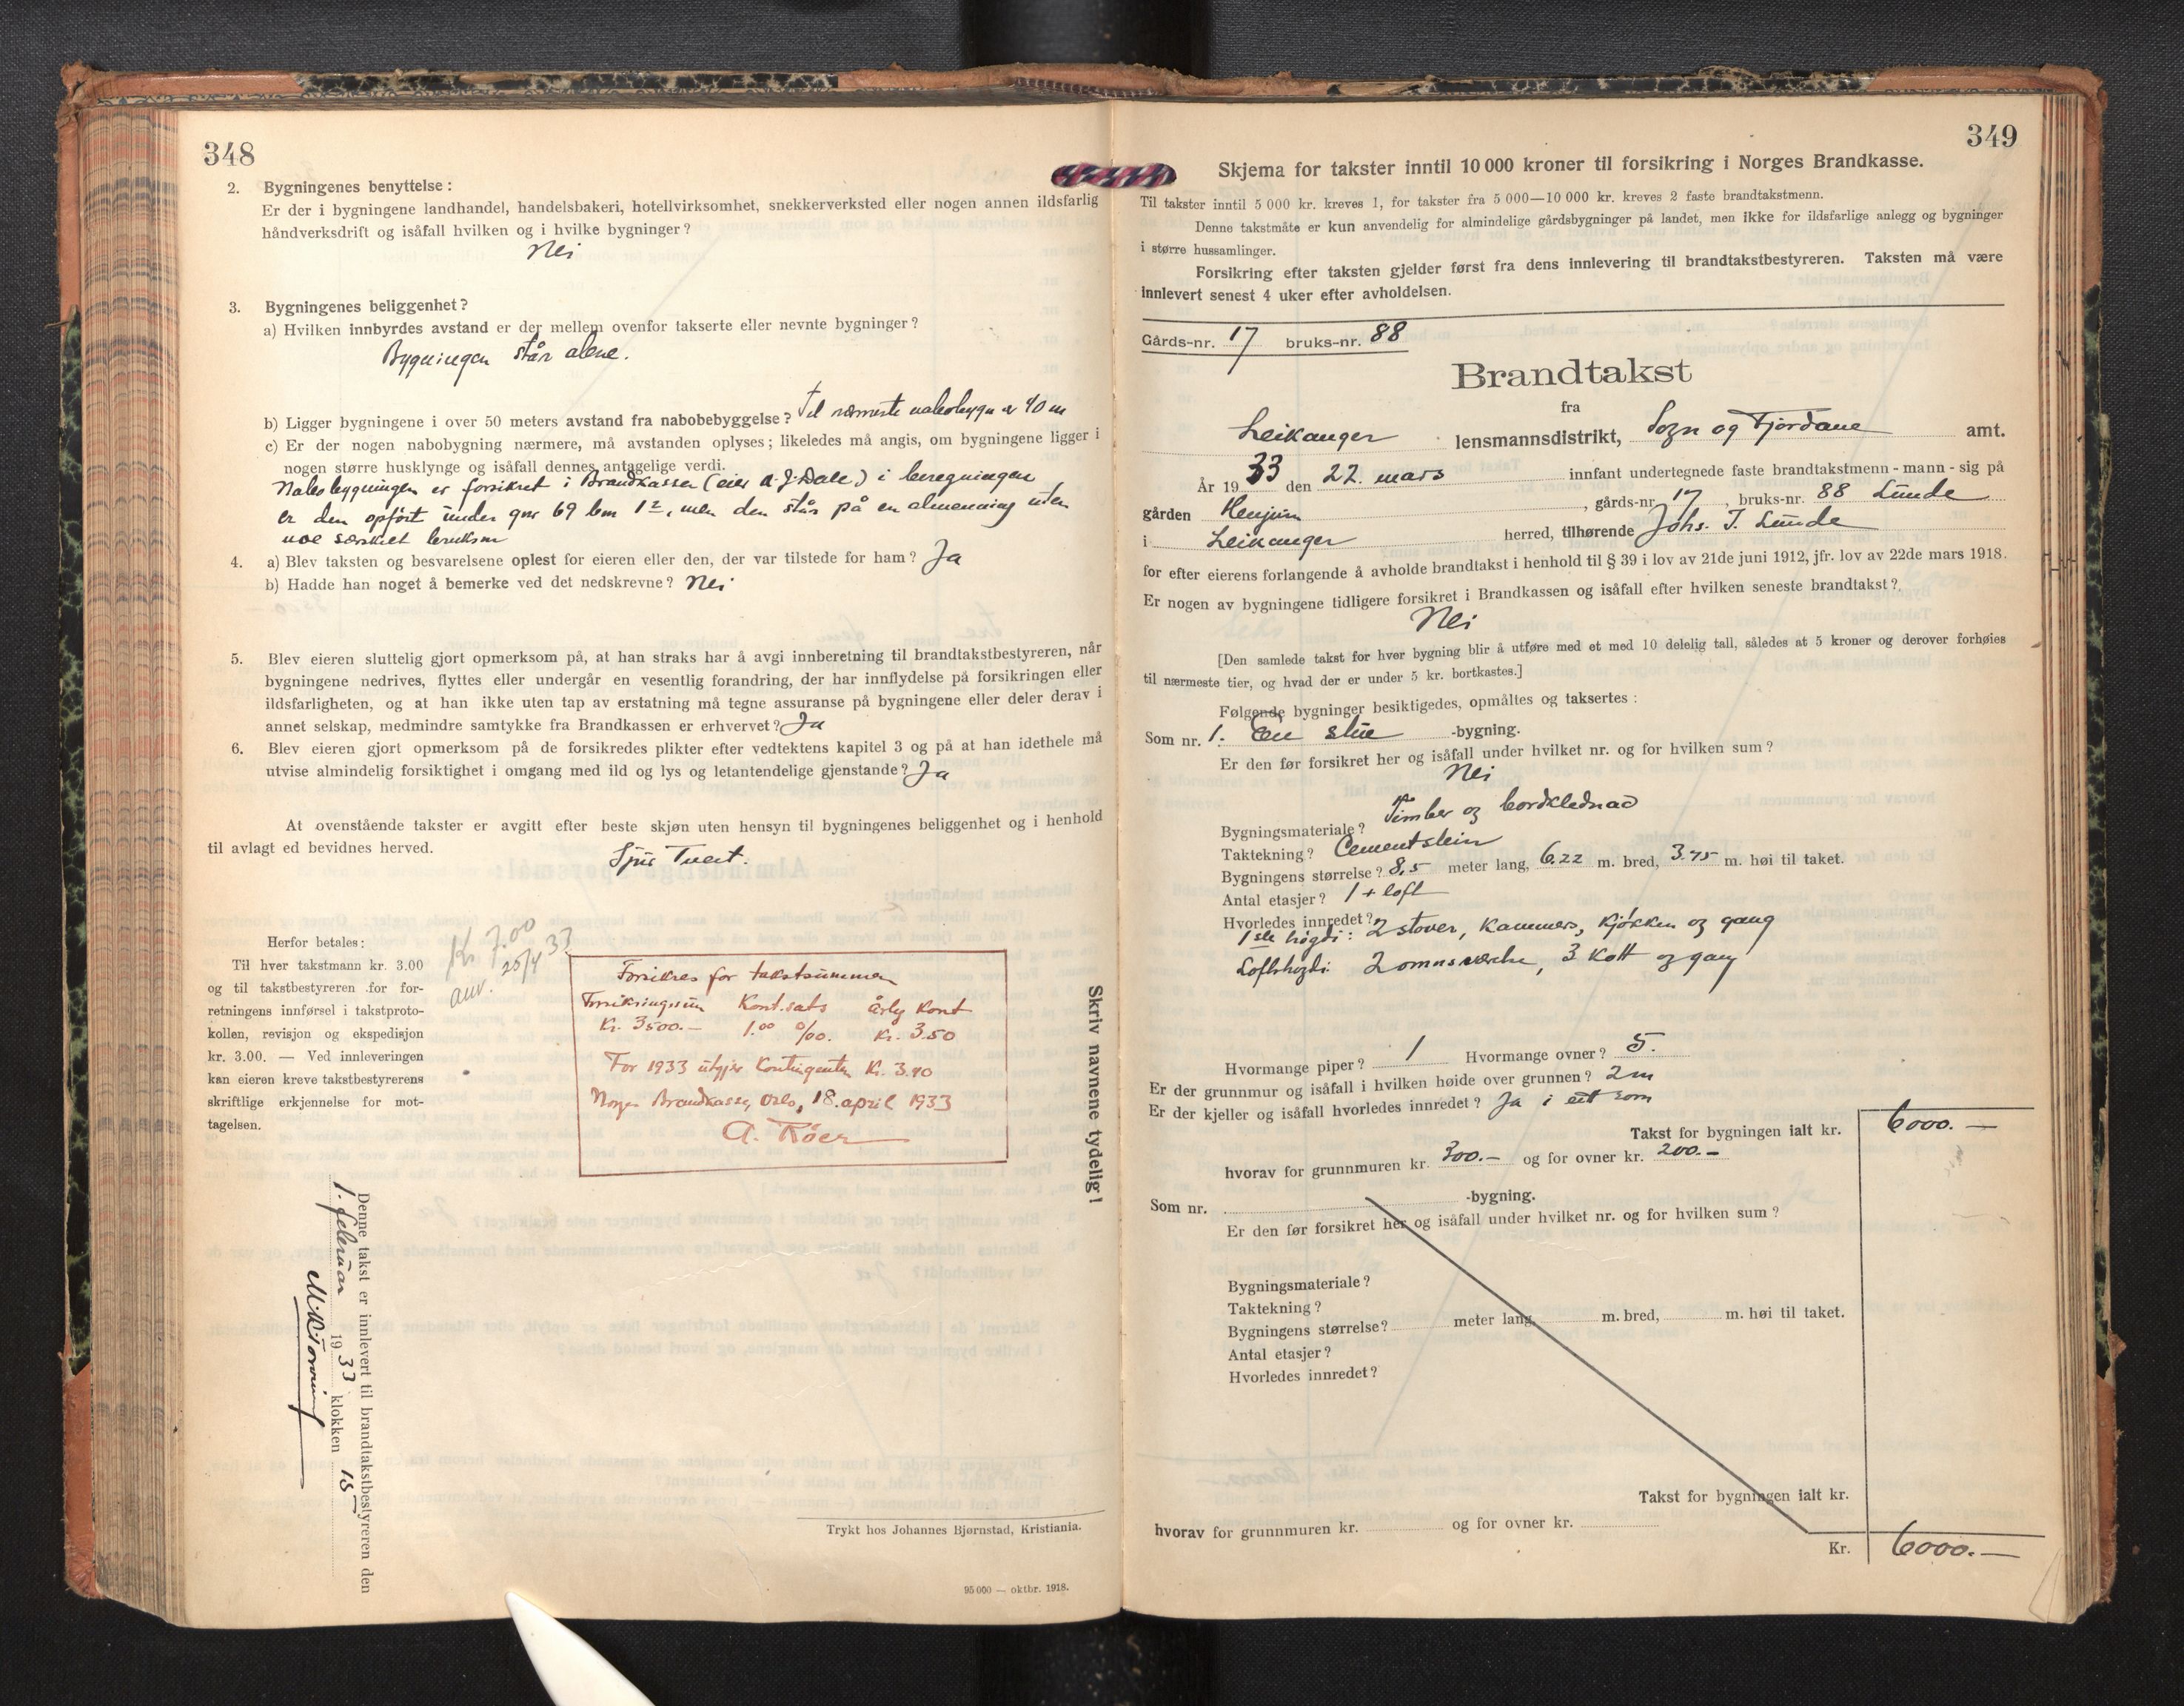 348
2. Bygningenes benyttelse:
Er der i bygningene landhandel, handelsbakeri, hotellvirksomhet, snekkerverksted eller nogen annen ildsfarlig
håndverksdrift og isåfall hvilken og i hvilke bygninger?
Nei
3. Bygningenes beliggenhet?
a) Hvilken innbyrdes avstand er der mellem ovenfor takserte eller nevnte bygninger?
Bygningen står alene.
b) Ligger bygningene i over 50 meters avstand fra nabobebyggelse? Til nærmeste nabobygn er 40 m
c) Er der nogen nabobygning nærmere, må avstanden oplyses; likeledes må angis, om bygningene ligger i
nogen større husklynge og isåfall dennes antagelige verdi.
Nabobygningen er forsikret i Brandkassen (eier A. J. Dale) i beregningen
er den opført under gnr 69 bnr 1, men den står på en almenning uten
noe særskilt bruksnr
4. a) Blev taksten og besvarelsene oplest for eieren eller den, der var tilstede for ham? Ja
b) Hadde han noget å bemerke ved det nedskrevne? Nei
5. Blev eieren sluttelig gjort opmerksom på, at han straks har å avgi innberetning til brandtakstbestyreren, når
bygningene nedrives, flyttes eller undergår en vesentlig forandring, der har innflydelse på forsikringen eller
ildsfarligheten, og at han ikke uten tap av erstatning må tegne assuranse på bygningene eller deler derav i
annet selskap, medmindre samtykke fra Brandkassen er erhvervet? Ja
6. Blev eieren gjort opmerksom på de forsikredes plikter efter vedtektens kapitel 3 og på at han idethele må
utvise almindelig forsiktighet i omgang med ild og lys og letantendelige gjenstande? Ja
At ovenstående takster er avgitt efter beste skjøn uten hensyn til bygningenes beliggenhet og i henhold
til avlagt ed bevidnes herved.
Sjur Tveit.
Herfor betales:
Til hver takstmann kr. 3.00
og til takstbestyreren for for-
retningens innførsel i takstproto-
kollen, revisjon og ekspedisjon
kr. 3.00. — Ved innleveringen
kan eieren kreve takstbestyrerens
skriftlige erkjennelse for mot-
tagelsen.
Kr 7.00
anv. 25/4 33
Forsikres for takstsummen
Forsikringssum Kont.sats årlig Kont
Kr. 3500.— 1.00 0/00. Kr. 3.50
For 1933 utgjør Kontingenten Kr. 3.40
Norges Brandkasse, Oslo, 18. april 1933
A. Röer
Skriv navnene tydelig!
Denne takst er innlevert til brandtakstbestyreren den
1. februar 1933 klokken 15
Trykt hos Johannes Bjørnstad, Kristiania.
95 000 — oktbr. 1918.
349
Skjema for takster inntil 10 000 kroner til forsikring i Norges Brandkasse.
Til takster inntil 5 000 kr. kreves 1, for takster fra 5 000—10 000 kr. kreves 2 faste brandtakstmenn.
Denne takstmåte er kun anvendelig for almindelige gårdsbygninger på landet, men ikke for ildsfarlige anlegg og bygninger
i større hussamlinger.
Forsikring efter taksten gjelder først fra dens innlevering til brandtakstbestyreren. Taksten må være
innlevert senest 4 uker efter avholdelsen.
Gårds-nr. 17 bruks-nr. 88
Brandtakst
fra
Leikanger lensmannsdistrikt, Sogn og Fjordane amt.
År 1933 den 22. mars innfant undertegnede faste brandtakstmenn - mann - sig på
gården Henjum, gårds-nr. 17, bruks-nr. 88 Lunde
i Leikanger herred, tilhørende Johs. J. Lunde
for efter eierens forlangende å avholde brandtakst i henhold til § 39 i lov av 21de juni 1912, jfr. lov av 22de mars 1918.
Er nogen av bygningene tidligere forsikret i Brandkassen og isåfall efter hvilken seneste brandtakst?
Nei
[Den samlede takst for hver bygning blir å utføre med et med 10 delelig tall, således at 5 kroner og derover forhøies
til nærmeste tier, og hvad der er under 5 kr. bortkastes.]
Følgende bygninger besiktigedes, opmåltes og taksertes:
Som nr. 1. En stue -bygning.
Er den før forsikret her og isåfall under hvilket nr. og for hvilken sum?
Nei
Bygningsmateriale? Timber og bordklednad
Taktekning? Cementstein
Bygningens størrelse? 8,5 meter lang, 6.22 m. bred, 3.75 m. høi til taket.
Antal etasjer? 1 + loft
Hvorledes innredet?
1ste høgdi: 2 stover, kammers, kjøkken og gang
Loftshøgdi: 2 omnsværelse, 3 kott og gang
Hvormange piper? 1 Hvormange ovner? 5.
Er der grunnmur og isåfall i hvilken høide over grunnen? 2 m
Er der kjeller og isåfall hvorledes innredet? Ja i eit rom
Takst for bygningen ialt kr. 6000.—
hvorav for grunnmuren kr. 300.— og for ovner kr. 200.—
Som nr. -bygning.
Er den før forsikret her og isåfall under hvilket nr. og for hvilken sum?
Bygningsmateriale?
Taktekning?
Bygningens størrelse? meter lang, m. bred, m. høi til taket.
Antal etasjer?
Hvorledes innredet?
Takst for bygningen ialt kr.
hvorav for grunnmuren kr. og for ovner kr.
Kr. 6000.—